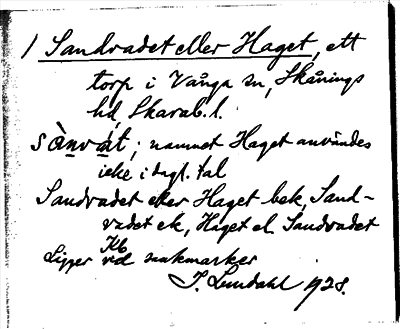 1 Sandvadet eller Haget, ett
torp i Vånga sn, Skånings
hd, Skarab. l.
sànvàt; namnet Haget användes
icke i dagl. tal
Sandvadet eller Haget bek, Sand-
vadet ek, Haget el. Sandvadet
Kb
Ligger vid sankmarker
J. Lundahl 1928.